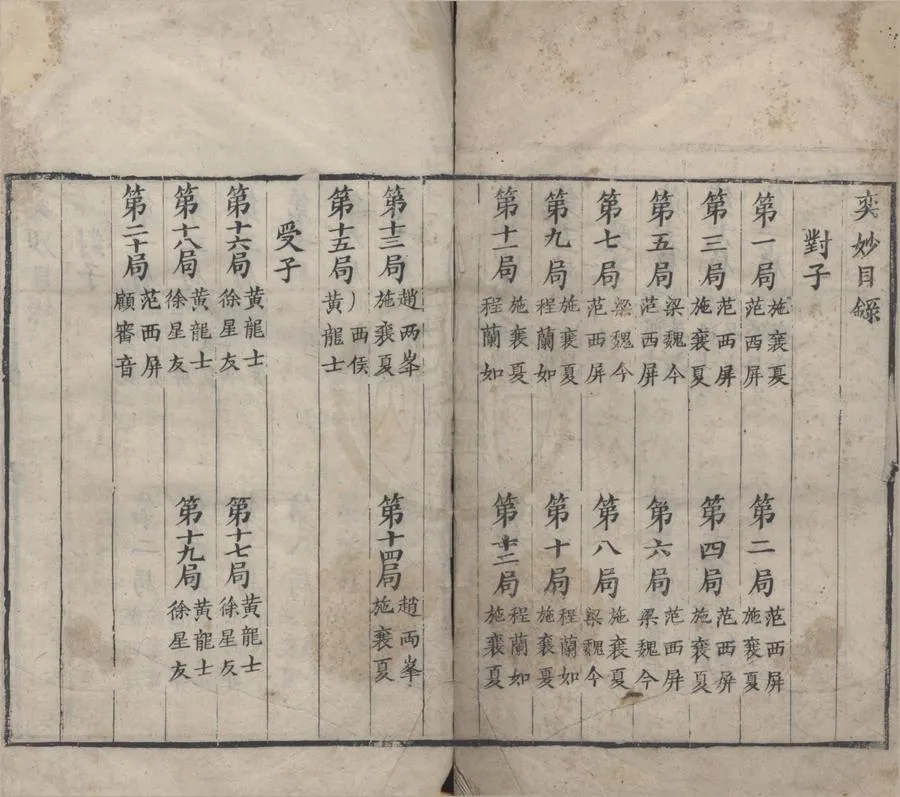 奕妙目錄
對子
第一局 施襄夏 范西屏 第二局 范西屏 施襄夏
第三局 范西屏 施襄夏 第四局 范西屏 施襄夏
第五局 梁魏今 范西屏 第六局 范西屏 梁魏今
第七局 梁魏今 范西屏 第八局 施襄夏 梁魏今
第九局 施襄夏 程蘭如 第十局 程蘭如 施襄夏
第十一局 施襄夏 程蘭如 第十二局 程蘭如 施襄夏
第十三局 趙两峯 施襄夏 第十四局 趙両峯 施襄夏
第十五局 西侯 黃龍士
受子
第十六局 黃龍士 徐星友 第十七局 黃龍士 徐星友
第十八局 黃龍士 徐星友 第十九局 黃龍士 徐星友
第二十局 范西屏 顧審音